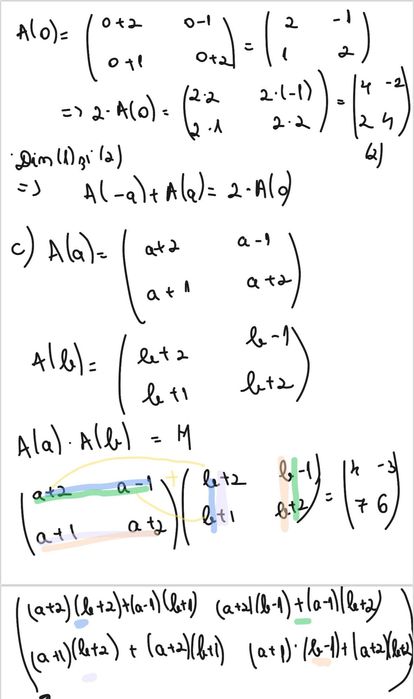 A(0) = ( 0+2 0-1 ) = ( 2 -1 )
( 0+1 0+2 ) ( 1 2 )
=> 2·A(0) = ( 2·2 2·(-1) ) = ( 4 -2 )
( 2·1 2·2 ) ( 2 4 )
(2)
Din (1) și (2)
=> A(-a) + A(a) = 2·A(0)
c) A(a) = ( a+2 a-1 )
( a+1 a+2 )
A(b) = ( b+2 b-1 )
( b+1 b+2 )
A(a) · A(b) = M
( a+2 a-1 ) + ( b+2 b-1 ) = ( 4 -3 )
( a+1 a+2 ) ( b+1 b+2 ) ( 7 6 )
( (a+2)(b+2)+(a-1)(b+1) (a+2)(b-1)+(a-1)(b+2) )
( (a+1)(b+2) + (a+2)(b+1) (a+1)·(b-1)+(a+2)(b+2) )